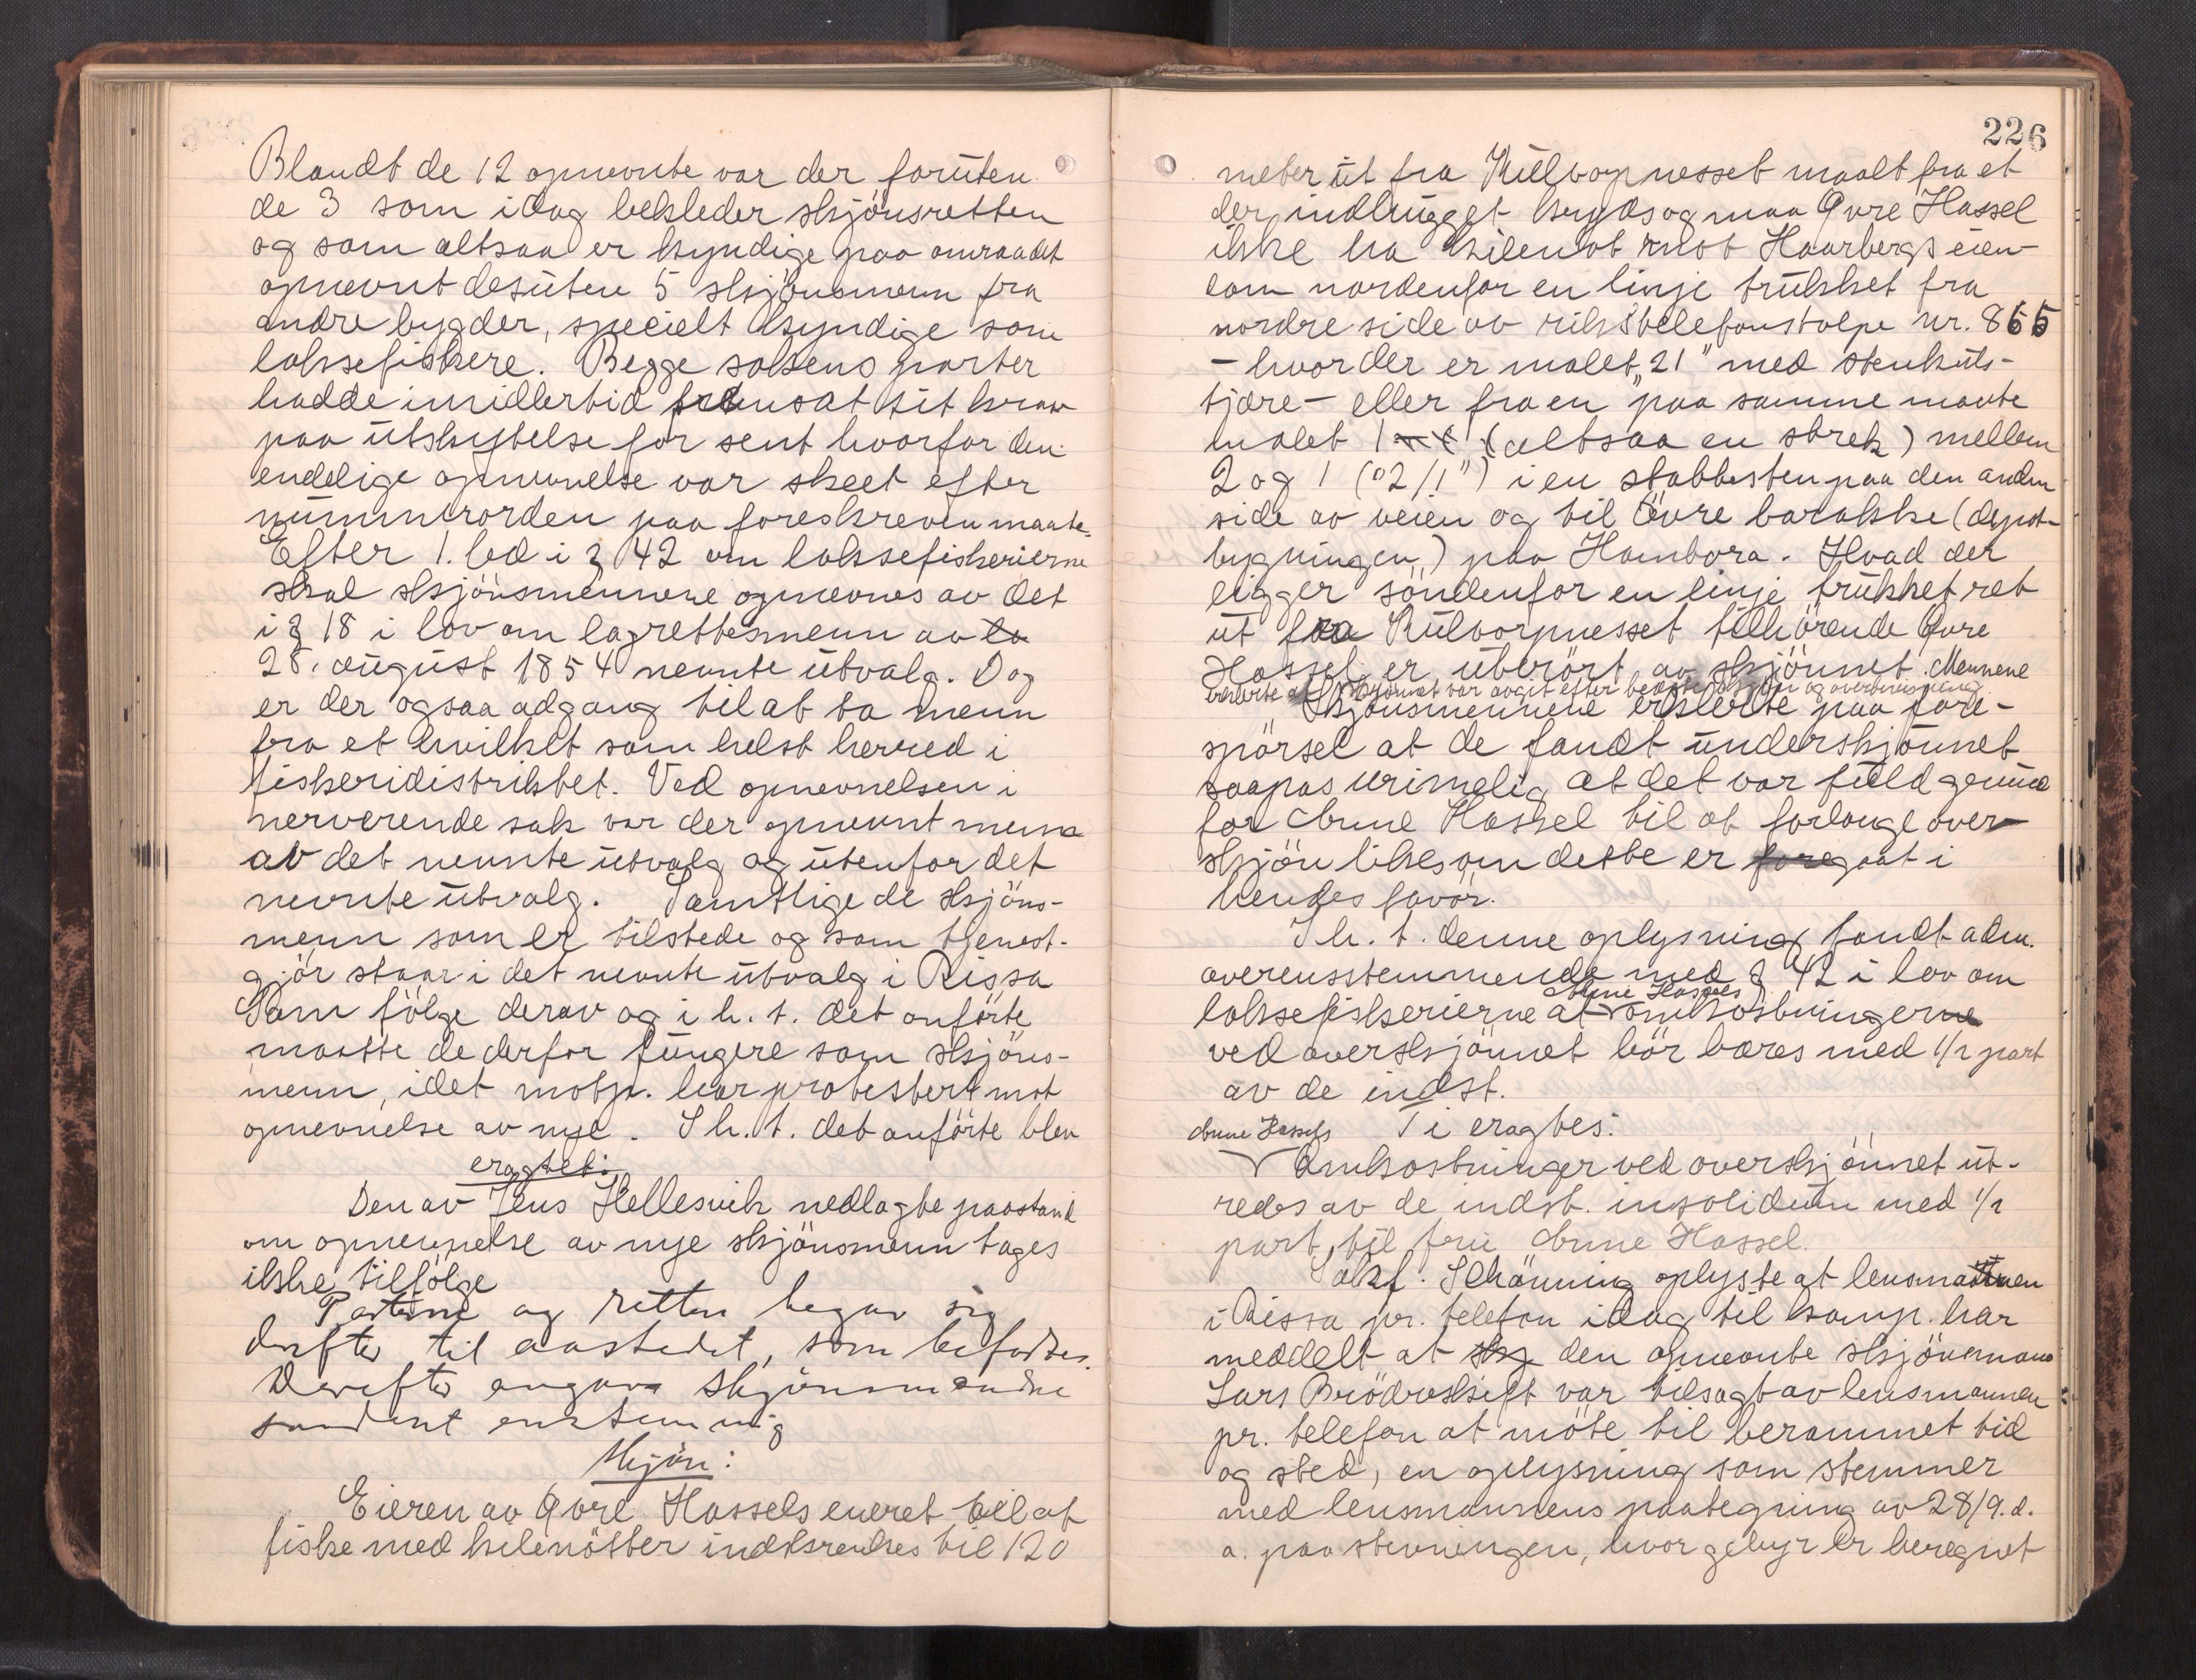 Blandt de 12 opnevnte var der foruten
de 3 som idag bekleder skjönsretten
og som altsaa er kyndige paa omraadet
opnevnt desuten 5 skjönsmenn fra
andre bygder, specielt kyndige som
laksefiskere. Begge sakens parter
hadde imidlertid fremsat sit krav
paa utskytelse for sent hvorfor den
endelige opnevnelse var skeet efter
nummerorden paa foreskreven maate.
Efter 1. led i § 42 om laksefiskerierne
skal skjönsmennene opnevnes av det
i § 18 i lov om lagrettesmenn av la
28. august 1854 nevnte utvalg. Dog
er der ogsaa adgang til at ta menn
fra et hvilket som helst herred i
fiskeridistriktet. Ved opnevnelsen i
nerverende sak var der opnevnt menn
av det nevnte utvalg og utenfor det
nevnte utvalg. Samtlige de skjöns-
menn som er tilstede og som tjenest-
gjör staar i det nevnte utvalg i Rissa
Som fölge derav og i h. t. det anförte
maatte de derfor fungere som skjöns-
menn, idet motp. har protestert mot
opnevnelse av nye. I h. t. det anförte blev
eragtet:
Den av Jens Hellesvik nedlagte paastand
om opnevnelse av nye skjönsmenn tages
ikke tilfölge
Parterne og retten begav sig
derefter til aastedet, som befordes.
Derefter avgav skjönsmendene
saadant enstemmig
Skjön:
Eieren av Övre Hassels eneret til at
fiske med kilenötter indskrenkes til 120
226
meter ut fra Kulvorpnesset maalt fra et
der indhugget kryds og maa Övre Hassel
ikke ha kilenot mot Haarbergs eien-
dom nordenfor en linje trukket fra
nordre side av rikstelefonstolpe nr. 865
- hvor der er malet "21" med stenkuls-
tjære - eller fra en paa samme maate
malet 1 (altsaa en strek) mellem
2 og 1 ("2/1") i en stabbesten paa den anden
side av veien og til övre barakke (depot-
bygningen) paa Hambora. Hvad der
ligger söndenfor en linje trukket ret
ut fra Kulvorpnesset tilhörende Övre
Hassel er uberört av skjönnet. Mennene
at skjönnet var avgit efter bedste skjön og overbevisning
Skjönsmennene erklerte paa fore-
spörsel at de fandt underskjönnet
saapas urimelig at det var fuld grund
for Anne Hassel til at forlange over-
skjön likesom dette er foregaat i
hendes favör.
I h. t. denne oplysning fandt adm.
overensstemmende med § 42 i lov om
Anne Hassels
laksefiskerierne at omkostningerne
ved overskjönnet bör bæres med 1/2 part
av de indst.
Ti eragtes:
Anne Hassels
Omkostninger ved overskjönnet ut-
redes av de indst. insolidum med 1/2
part til fru Anne Hassel.
Sakf. Schönning oplyste at lensmannen
i Rissa pr. telefon idag til komp. har
meddelt at skj den opnevnte skjönsmann
Lars Brödreskift var tilsagt av lensmannen
pr. telefon at möte til berammet tid
og sted, en oplysning som stemmer
med lensmannens paategning av 28/9. d.
a. paa stevningen, hvor gebyr er beregnet